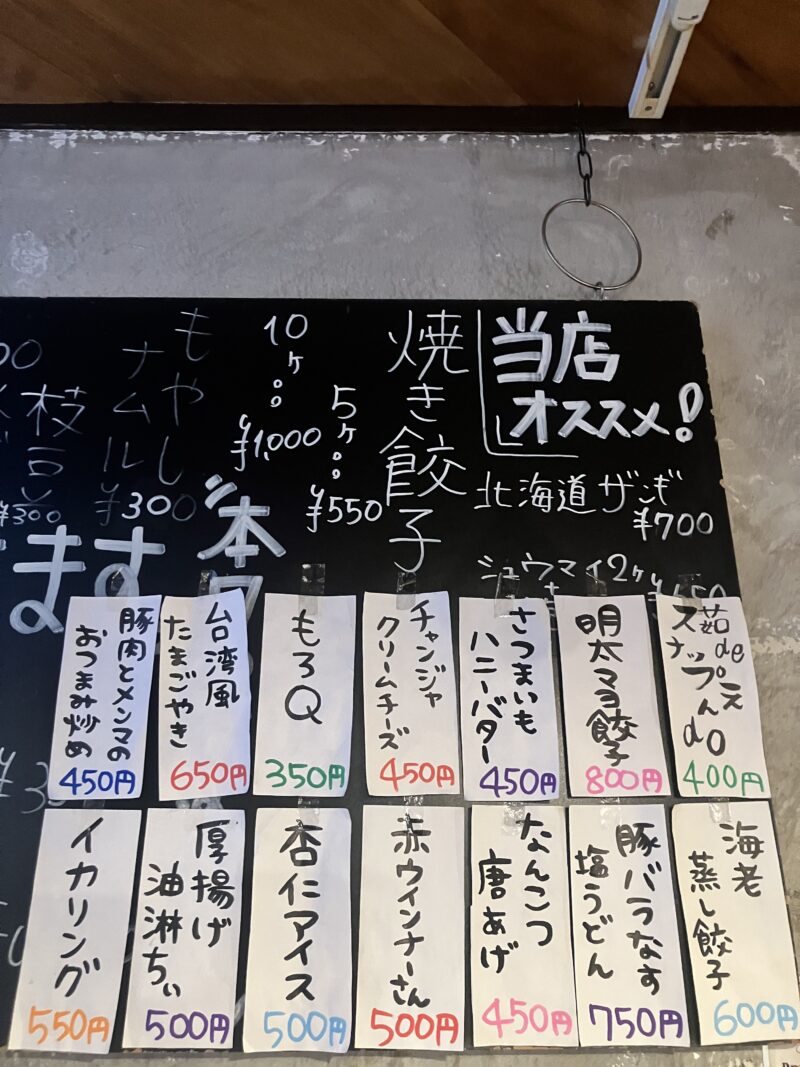 当店
オススメ!
北海道ザンギ
¥700
シュウマイ2ヶ
焼き餃子
5ヶ。。¥550
10ヶ。。¥1,000
もやし
ナムル
¥300
枝豆
¥300
ます
茹de
スナップえんdo
400円
明太マヨ餃子
800円
さつまいも
ハニーバター
450円
チャンジャ
クリームチーズ
450円
もろQ
350円
台湾風
たまごやき
650円
豚肉とメンマの
おつまみ炒め
450円
海老
蒸し餃子
600円
豚バラなす
塩うどん
750円
なんこつ
唐あげ
450円
赤ウインナーさん
500円
杏仁アイス
500円
厚揚げ
油淋ちぃ
500円
イカリング
550円